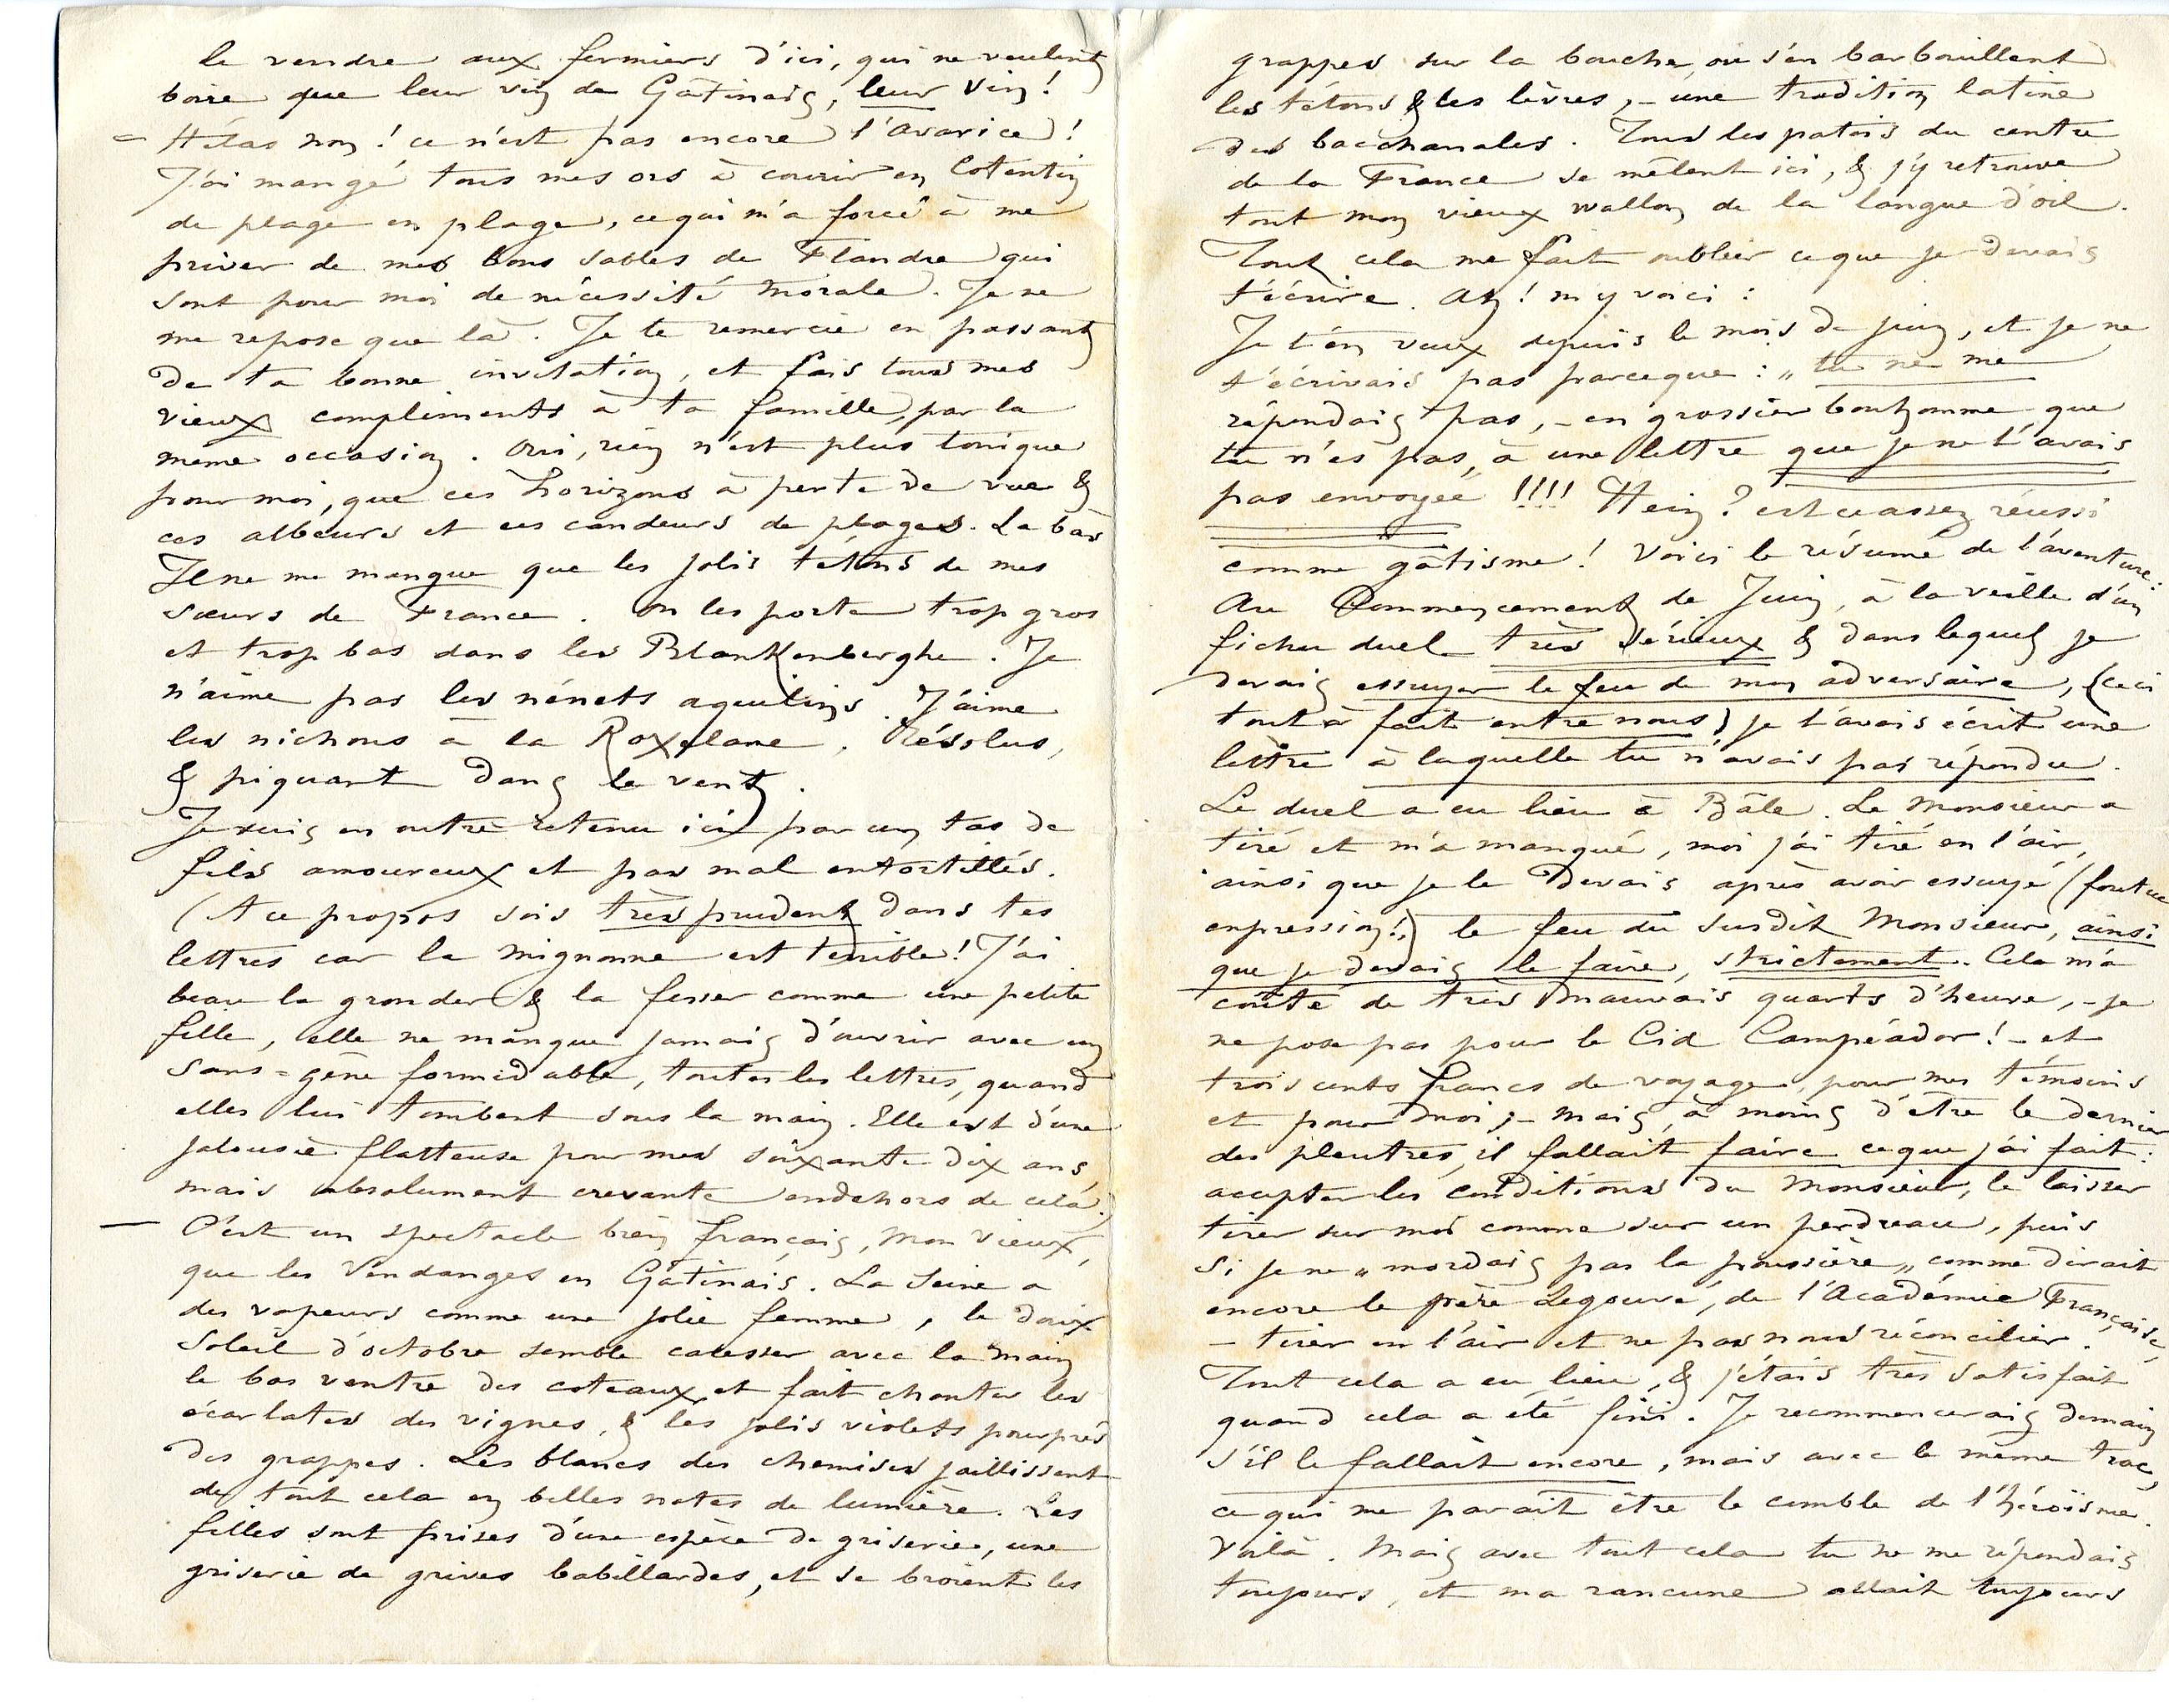 le vendre aux fermiers d'ici, qui ne veulent
boire que leur vin de Gâtinais, leur vin !
– Hélas non ! ce n'est pas encore l'avarice !
J'ai mangé tous mes ors à courir en Cotentin
de plage en plage, ce qui m'a forcé à me
priver de mes bons sables de Flandre qui
sont pour moi de nécessité morale. Je ne
me repose que là. Je te remercie en passant
de ta bonne invitation, et fais tous mes
vieux compliments à ta famille, par la
même occasion. Oui, rien n'est plus tonique
pour moi, que ces horizons à perte de vue &
ces albeurs et ces candeurs de plages. La bas
Il ne me manque que les jolis tétons de mes
sœurs de France. On les porte trop gros
et trop bas dans les Blankenberghe. Je
n'aime pas les nénets aquilins. J'aime
les nichons à la Roxelane. Résolus,
& piquant dans le vent.
Je suis en outre retenu ici par un tas de
fils amoureux et pas mal entortillés.
(A ce propos sois très prudent dans tes
lettres car la mignonne est terrible ! J'ai
beau la gronder & la fesser comme une petite
fille, elle ne manque jamais d'ouvrir avec un
sans-gêne formidable, toutes les lettres, quand
elles lui tombent sous la main. Elle est d'une
jalousie flatteuse pour mes soixante dix ans,
mais absolument crevante en dehors de cela.)
— C'est un spectacle bien français, mon vieux,
que les Vendanges en Gâtinais. La Seine a
des vapeurs comme une jolie femme, le doux
Soleil d'octobre semble caresser avec la main
le bas ventre des coteaux, et fait chanter les
écarlates des vignes, & les jolis violets pourprés
des grappes. Les blancs des chemises jaillissent
de tout cela en belles notes de lumière. Les
filles sont prises d'une espèce de griserie, une
griserie de grives babillardes, et se broient les
grappes sur la bouche, ou s'en barbouillent
les tétons & les lèvres, – une tradition latine
des bacchanales. Tous les patois du centre
de la France se mêlent ici, & j'y retrouve
tout mon vieux wallon de la langue d'oil.
Tout cela me fait oublier ce que je devais
t'écrire. Ah ! m'y voici :
Je t'en veux depuis le mois de juin, et je ne
t'écrivais pas parceque : „ tu ne me
répondais pas, – en grossier bonhomme que
tu n'es pas, à une lettre que je ne t'avais
pas envoyée !!!! Hein ? est ce assez réussi
comme gâtisme ! Voici le résumé de l'aventure :
Au Commencement de Juin, à la veille d'un
fichu duel très sérieux & dans lequel je
devais essuyer le feu de mon adversaire, (ceci
tout à fait entre nous) je t'avais écrit une
lettre à laquelle tu n'avais pas répondu.
Le duel a eu lieu à Bâle. Le Monsieur a
tiré et m'a manqué, moi j'ai tiré en l'air,
ainsi que je le devais après avoir essuyé (foutue
expression !) le feu du susdit Monsieur, ainsi
que je devais le faire, strictement. Cela m'a
coûté de très mauvais quarts d'heure, – je
ne pose pas pour le Cid Campéador ! – et
trois cents francs de voyage, pour mes témoins
et pour moi ; – mais, à moins d'être le dernier
des pleutres, il fallait faire ce que j'ai fait :
accepter les conditions du Monsieur, le laisser
tirer sur moi comme sur un perdreau, puis
si je ne „ mordais pas la poussière „ comme dirait
encore le père Legouvé, de l'Académie Française,
– tirer en l'air et ne pas nous réconcilier.
Tout cela a eu lieu, & j'étais très satisfait
quand cela a été fini. Je recommencerais demain
s'il le fallait encore, mais avec le même trac,
ce qui me parait être le comble de l'héroïsme.
Voilà. Mais avec tout cela tu ne me répondais
toujours, et ma rancune allait toujours